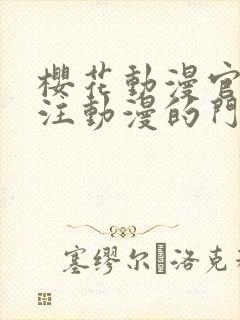 櫻花動漫官
注動漫的門
塞缪尔·洛克